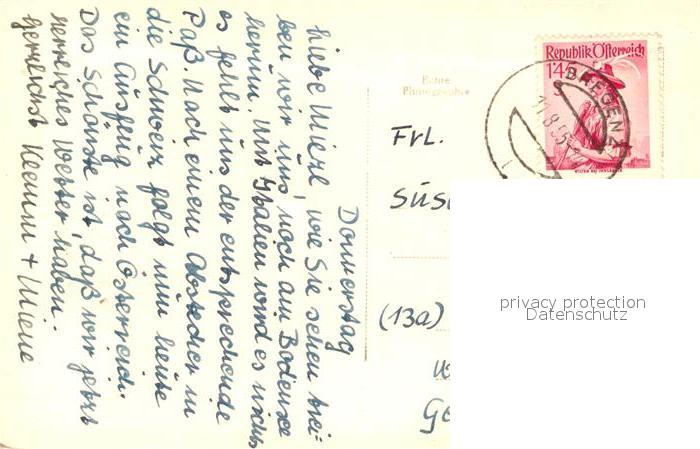 Donnerstag
Liebe Mierl, wie Sie sehen trei-
ben wir uns noch am Bodensee
herum. Mit Italien wird es nichts
es fehlt uns der entsprechende
Paß. Nach einem Abstecher in
die Schweiz folgt nun heute
ein Ausflug nach Österreich.
Das Schönste ist, daß wir jetzt
herrliches Wetter haben.
Herzlichst Keemm + Miene
Echte
Photographie
Republik Österreich
1'45
BREGENZ
11.8.55
Frl.
Sus
(13a)
Ge
privacy protection
Datenschutz